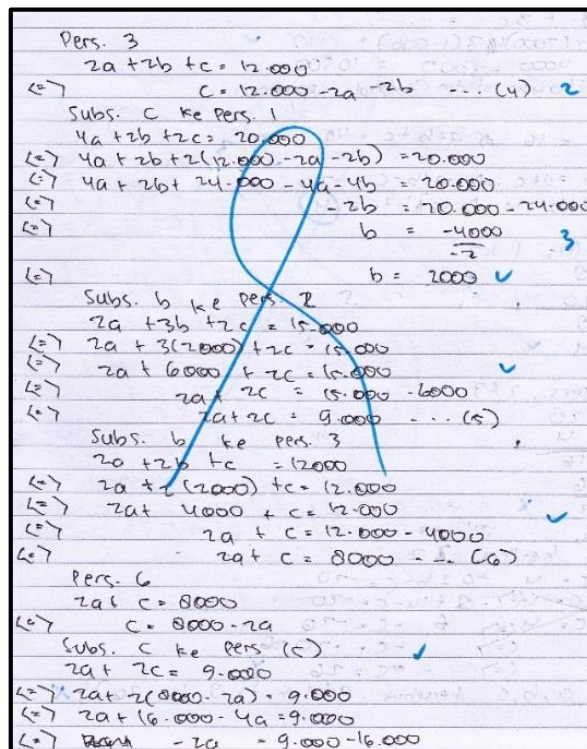 Pers. 3
2a + 2b + c = 12.000
<=> c = 12.000 - 2a - 2b ... (4) 2
Subs. c ke Pers. 1
4a + 2b + 2c = 20.000
<=> 4a + 2b + 2(12.000 - 2a - 2b) = 20.000
<=> 4a + 2b + 24.000 - 4a - 4b = 20.000
<=> -2b = 20.000 - 24.000
<=> b = -4000 / -2 3
<=> b = 2000 ✓
Subs. b ke Pers. 2
2a + 3b + 2c = 15.000
<=> 2a + 3(2000) + 2c = 15.000
<=> 2a + 6000 + 2c = 15.000 ✓
<=> 2a + 2c = 15.000 - 6000
<=> 2a + 2c = 9.000 ... (5)
Subs. b ke Pers. 3
2a + 2b + c = 12000
<=> 2a + 2(2000) + c = 12.000
<=> 2a + 4000 + c = 12.000 ✓
<=> 2a + c = 12.000 - 4000
<=> 2a + c = 8000 ... (6)
Pers. 6
2a + c = 8000
<=> c = 8000 - 2a
Subs. c ke Pers (5) ✓
2a + 2c = 9.000
<=> 2a + 2(8000 - 2a) = 9.000
<=> 2a + 16.000 - 4a = 9.000
<=> -2a = 9.000 - 16.000